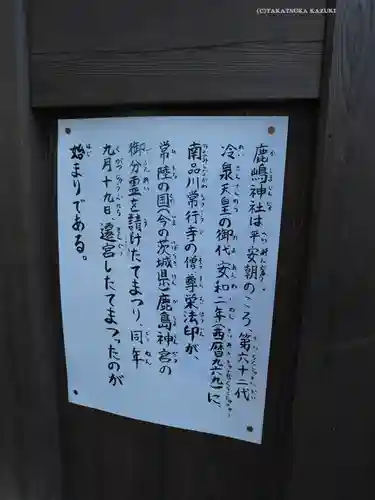 (C)TAKATSUKA KAZUKI
鹿嶋神社は平安朝のころ、第六十二代
冷泉天皇の御代、安和二年(西暦九六九)に、
南品川常行寺の僧尊栄法印が
常陸の国(今の茨城県)鹿島神宮の
御分霊を請けたてまつり、同年
九月十九日、遷宮したてまつったのが
始まりである。